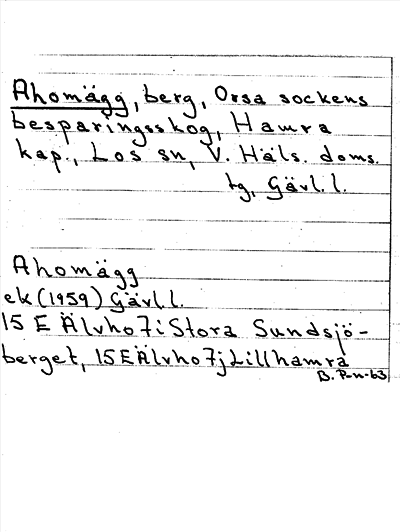 Ahomägg, berg, Orsa sockens
besparingsskog, Hamra
kap., Los sn, V. Häls. doms.
tg, Gävl.l.
Ahomägg
ek (1959) Gävl.l.
15 E Älvho 7i Stora Sundsjö-
berget, 15 E Älvho 7j Lillhamra
B. P-n-63